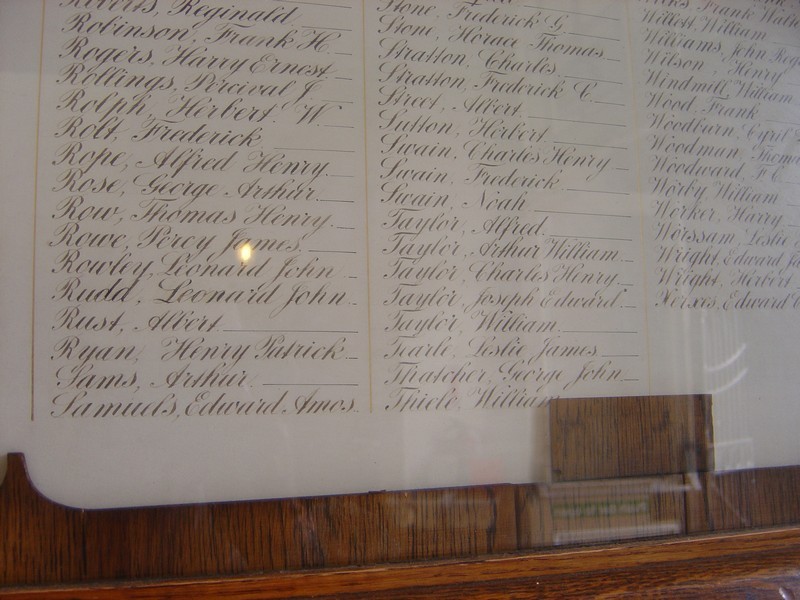 Roberts, Reginald
Robinson, Frank H.
Rogers, Harry Ernest
Rollings, Percival J.
Rolph, Herbert W.
Rolt, Frederick
Rope, Alfred Henry
Rose, George Arthur
Row, Thomas Henry
Rowe, Percy James
Rowley, Leonard John
Rudd, Leonard John
Rust, Albert
Ryan, Henry Patrick
Sams, Arthur
Samuels, Edward Amos
Stone, Frederick G.
Stone, Horace Thomas
Stratton, Charles
Stratton, Frederick C.
Street, Albert
Sutton, Herbert
Swain, Charles Henry
Swain, Frederick
Swain, Noah
Taylor, Alfred
Taylor, Arthur William
Taylor, Charles Henry
Taylor, Joseph Edward
Taylor, William
Tearle, Leslie James
Thatcher, George John
Thiele, William
Frank
Willett, William
Williams, John
Wilson, Henry
Windmill, William
Wood, Frank
Woodburn, Cyril
Woodman, Thomas
Woodward, F. C.
Worby William
Worker, Harry
Worssam, Leslie
Wright, Edward
Wright, Herbert
Xerxes, Edward